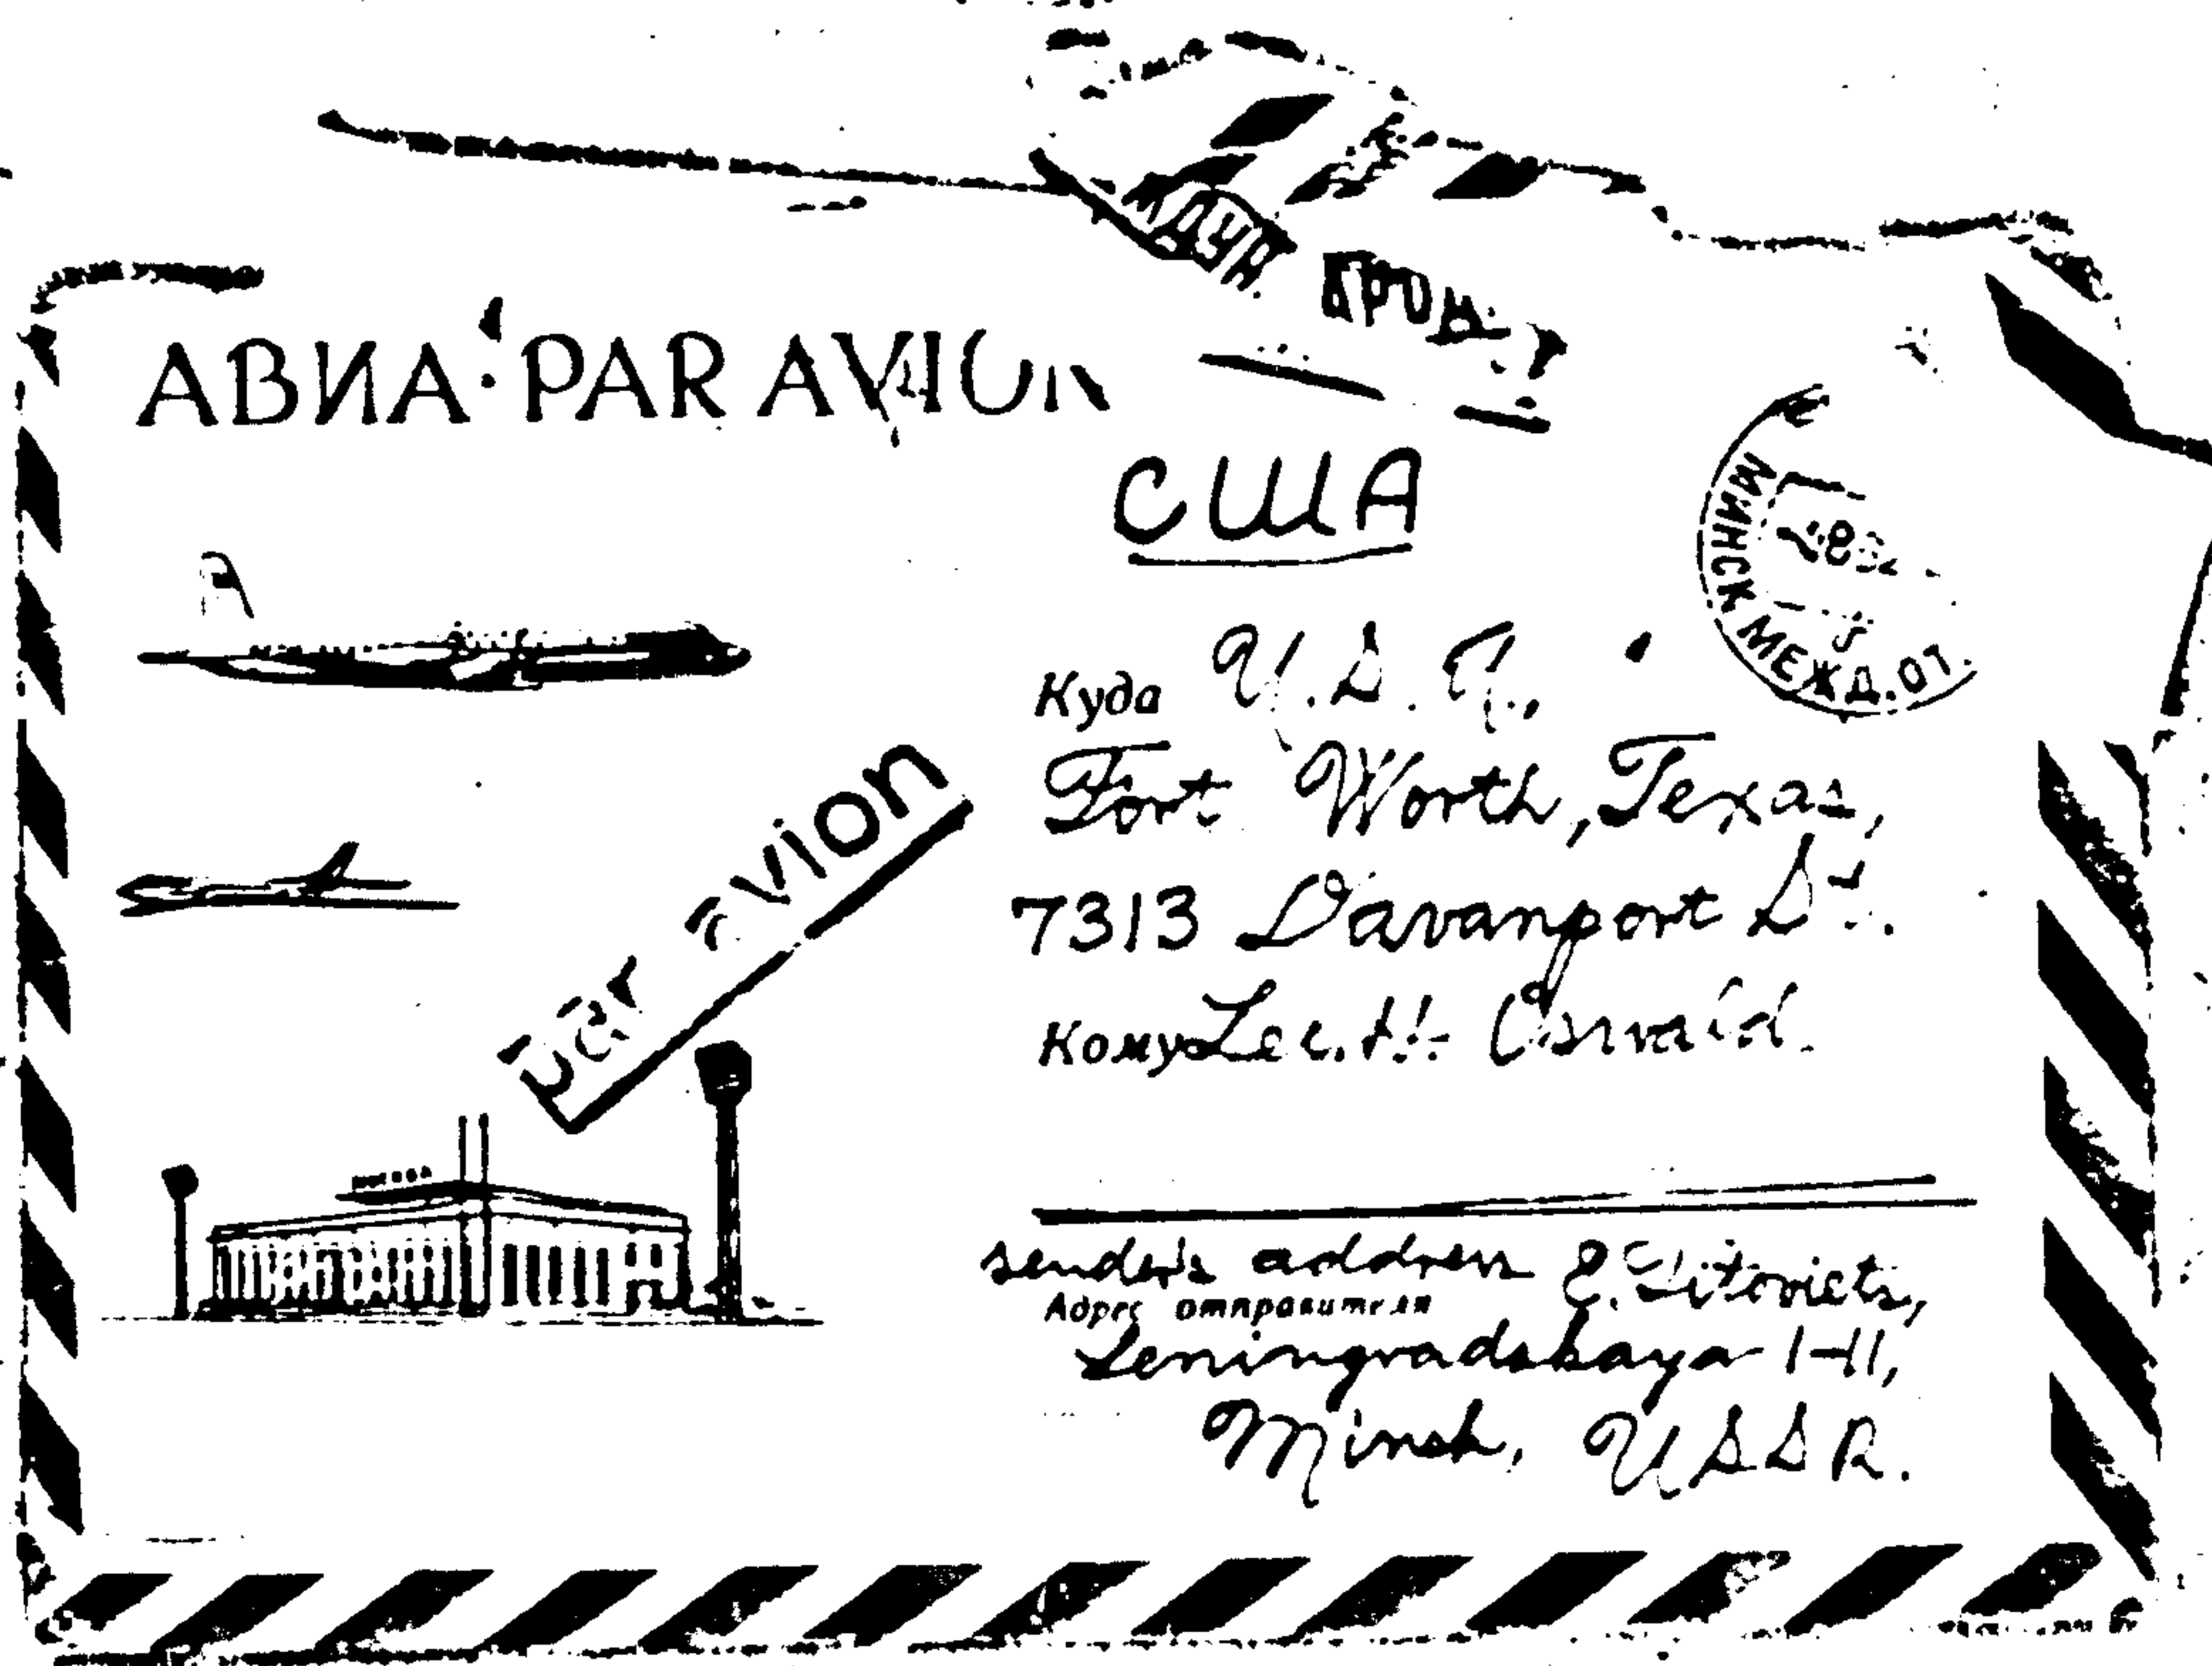 АВИА·PAR AVION
США
Куда U.S.A.,
Fort Worth, Texas,
7313 Davanport St.
Кому Lee H. Oswald.
par avion
МИНСК МЕЖД. 
sender's address E. Titovets,
Адрес отправителя
Leningradskaya 1-11,
Minsk, USSR.